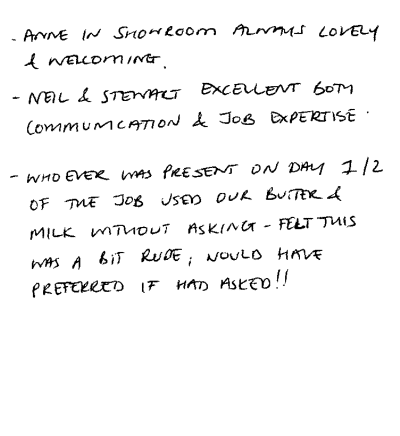 - ANNE IN SHOWROOM ALWAYS LOVELY
& WELCOMING.
- NEIL & STEWART EXCELLENT BOTH
COMMUNICATION & JOB EXPERTISE.
- WHO EVER WAS PRESENT ON DAY 1/2
OF THE JOB USED OUR BUTTER &
MILK WITHOUT ASKING - FELT THIS
WAS A BIT RUDE; WOULD HAVE
PREFERRED IF HAD ASKED!!